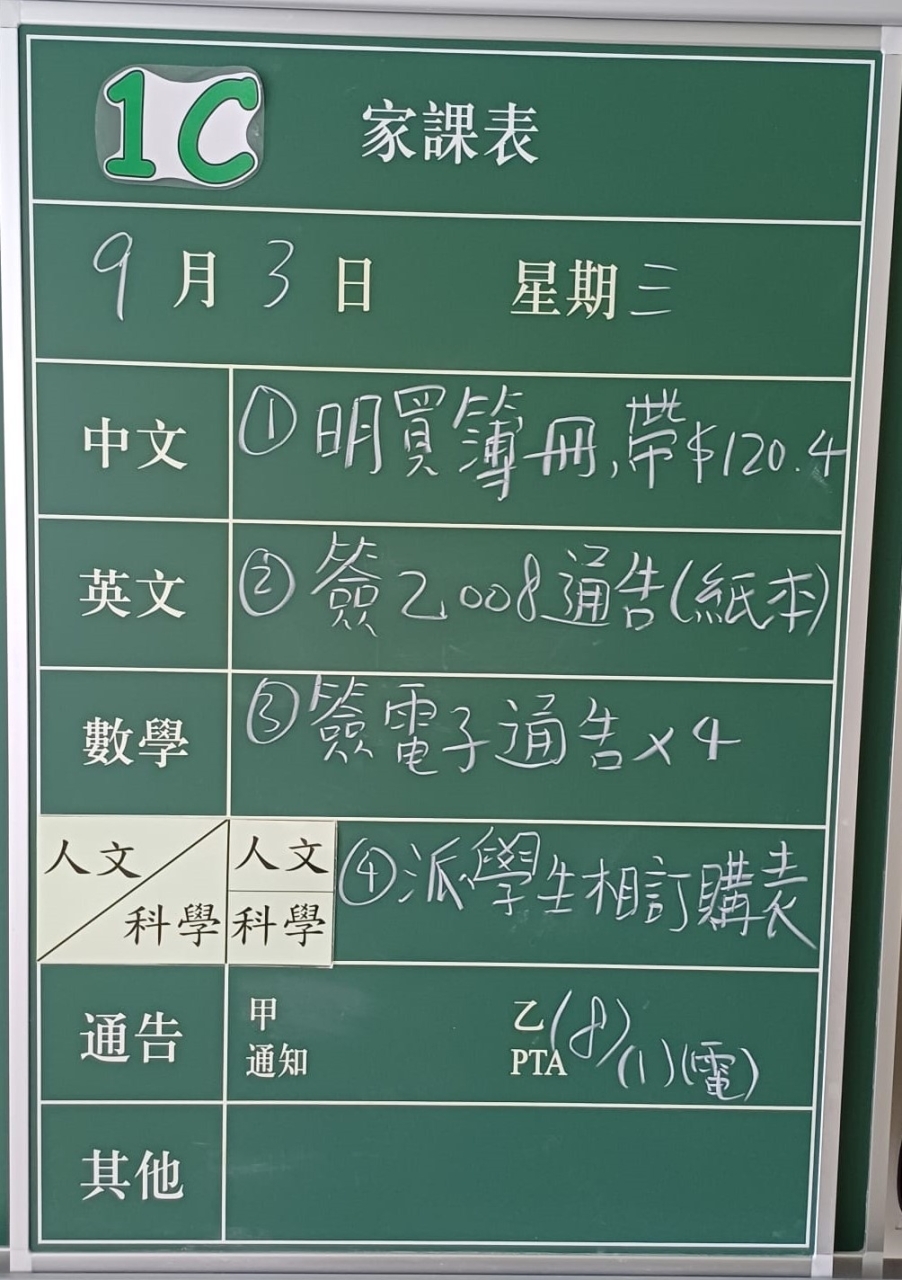 1C 家課表
9月3日 星期三
中文 ①明買簿冊,帶$120.4
英文 ②簽乙008通告(紙本)
數學 ③簽電子通告x4
人文 科學 人文 科學 ④派學生相訂購表
通告 甲 乙(8)
通知 PTA(1)(電)
其他